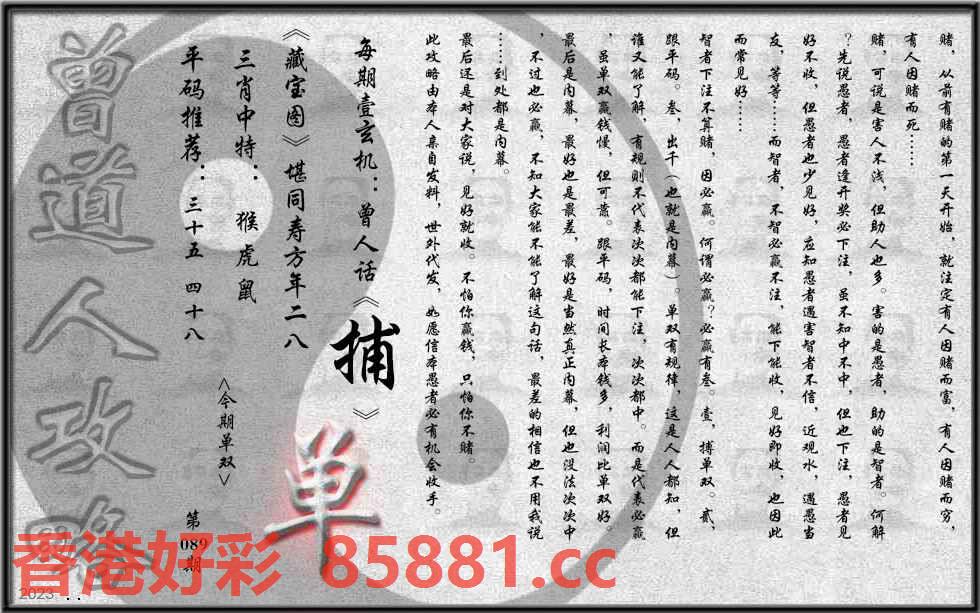 赌，从前有赌的第一天开始，就注定有人因赌而富，有人因赌而穷，
有人因赌而死……
赌，可说是害人不浅，但助人也多。害的是愚者，助的是智者。何解
？先说愚者，愚者逢开奖必下注，虽不知中不中，但也下注，愚者见
好不收，但愚者也少见好，应知愚者遇害智者不信，近观水，遇愚当
友，等等……而智者，不智必赢不注，能下能收，见好即收，也因此
而常见好……
智者下注不算赌，因必赢。何谓必赢？必赢有叁。壹，搏单双。贰，
跟平码。叁，出千（也就是内幕）。单双有规律，这是人人都知，但
谁又能了解，有规则不代表次次都能下注，次次都中。而是代表必赢
，虽单双赢钱慢，但可靠。跟平码，时间长本钱多，利润比单双好。
最后是内幕，最好也是最差，最好是当然真正内幕，但也没法次次中
，不过也必赢，不知大家能不能了解这句话，最差的相信也不用我说
……到处都是内幕。
最后还是对大家说，见好就收。不怕你赢钱，只怕你不赌。
此攻略由本人亲自发料，世外代发，如愿信本愚者必有机会收手。
每期壹玄机：曾人话《捕》
《藏宝图》堪同寿方年二八
三肖中特：猴虎鼠
平码推荐：三十五 四十八
<今期单双>
单
第
089
期
曾道人攻略
香港好彩 85881.cc
2023